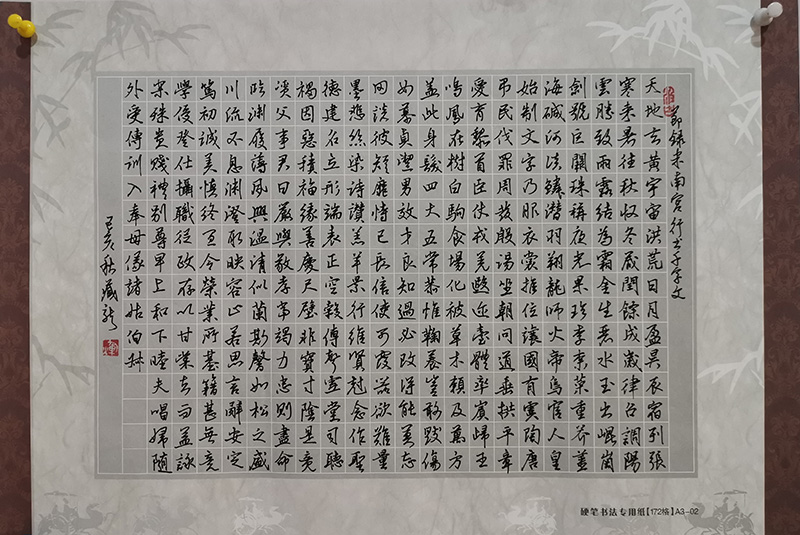 節録米南宫行书千字文
天地玄黄宇宙洪荒日月盈昃辰宿列張
寒来暑往秋收冬蔵閏餘成歲律吕調陽
雲騰致雨露結為霜金生麗水玉出崐崗
劍號巨闕珠稱夜光果珍李柰菜重芥薑
海鹹河淡鱗潜羽翔龍師火帝鳥官人皇
始制文字乃服衣裳推位讓國有虞陶唐
弔民伐罪周發殷湯坐朝問道垂拱平章
愛育黎首臣伏戎羌遐迩壹體率賓歸王
鳴鳳在樹白駒食場化被草木賴及萬方
蓋此身髮四大五常恭惟鞠養豈敢毀傷
女慕貞潔男效才良知過必改得能莫忘
罔談彼短靡恃己長信使可覆器欲難量
墨悲絲染詩讚羔羊景行維賢剋念作聖
德建名立形端表正空谷傳聲虛堂習聽
禍因惡積福緣善慶尺璧非寶寸陰是竞
資父事君曰嚴與敬孝當竭力忠則盡命
臨深履薄夙興温清似蘭斯馨如松之盛
川流不息淵澄取映容止若思言辭安定
篤初誠美慎終宜令榮業所基籍甚無竟
學優登仕攝職從政存以甘棠去而益詠
樂殊貴賤禮别尊卑上和下睦夫唱婦隨
外受傅訓入奉母儀諸姑伯叔
己亥秋藏
硬笔书法专用纸【172格】A3-02